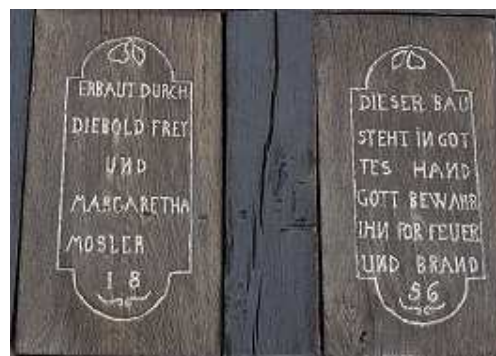 ERBAUT DURCH
DIEBOLD FREY
UND
MARGARETHA
MOSLER
18
DIESER BAU
STEHT IN GOT
TES HAND
GOTT BEWAHR
IHN FOR FEUER
UND BRAND
56